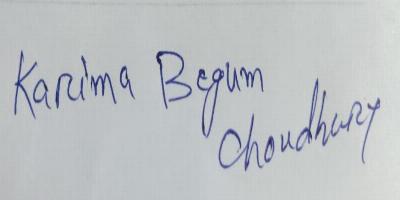 Karima Begum
Choudhury